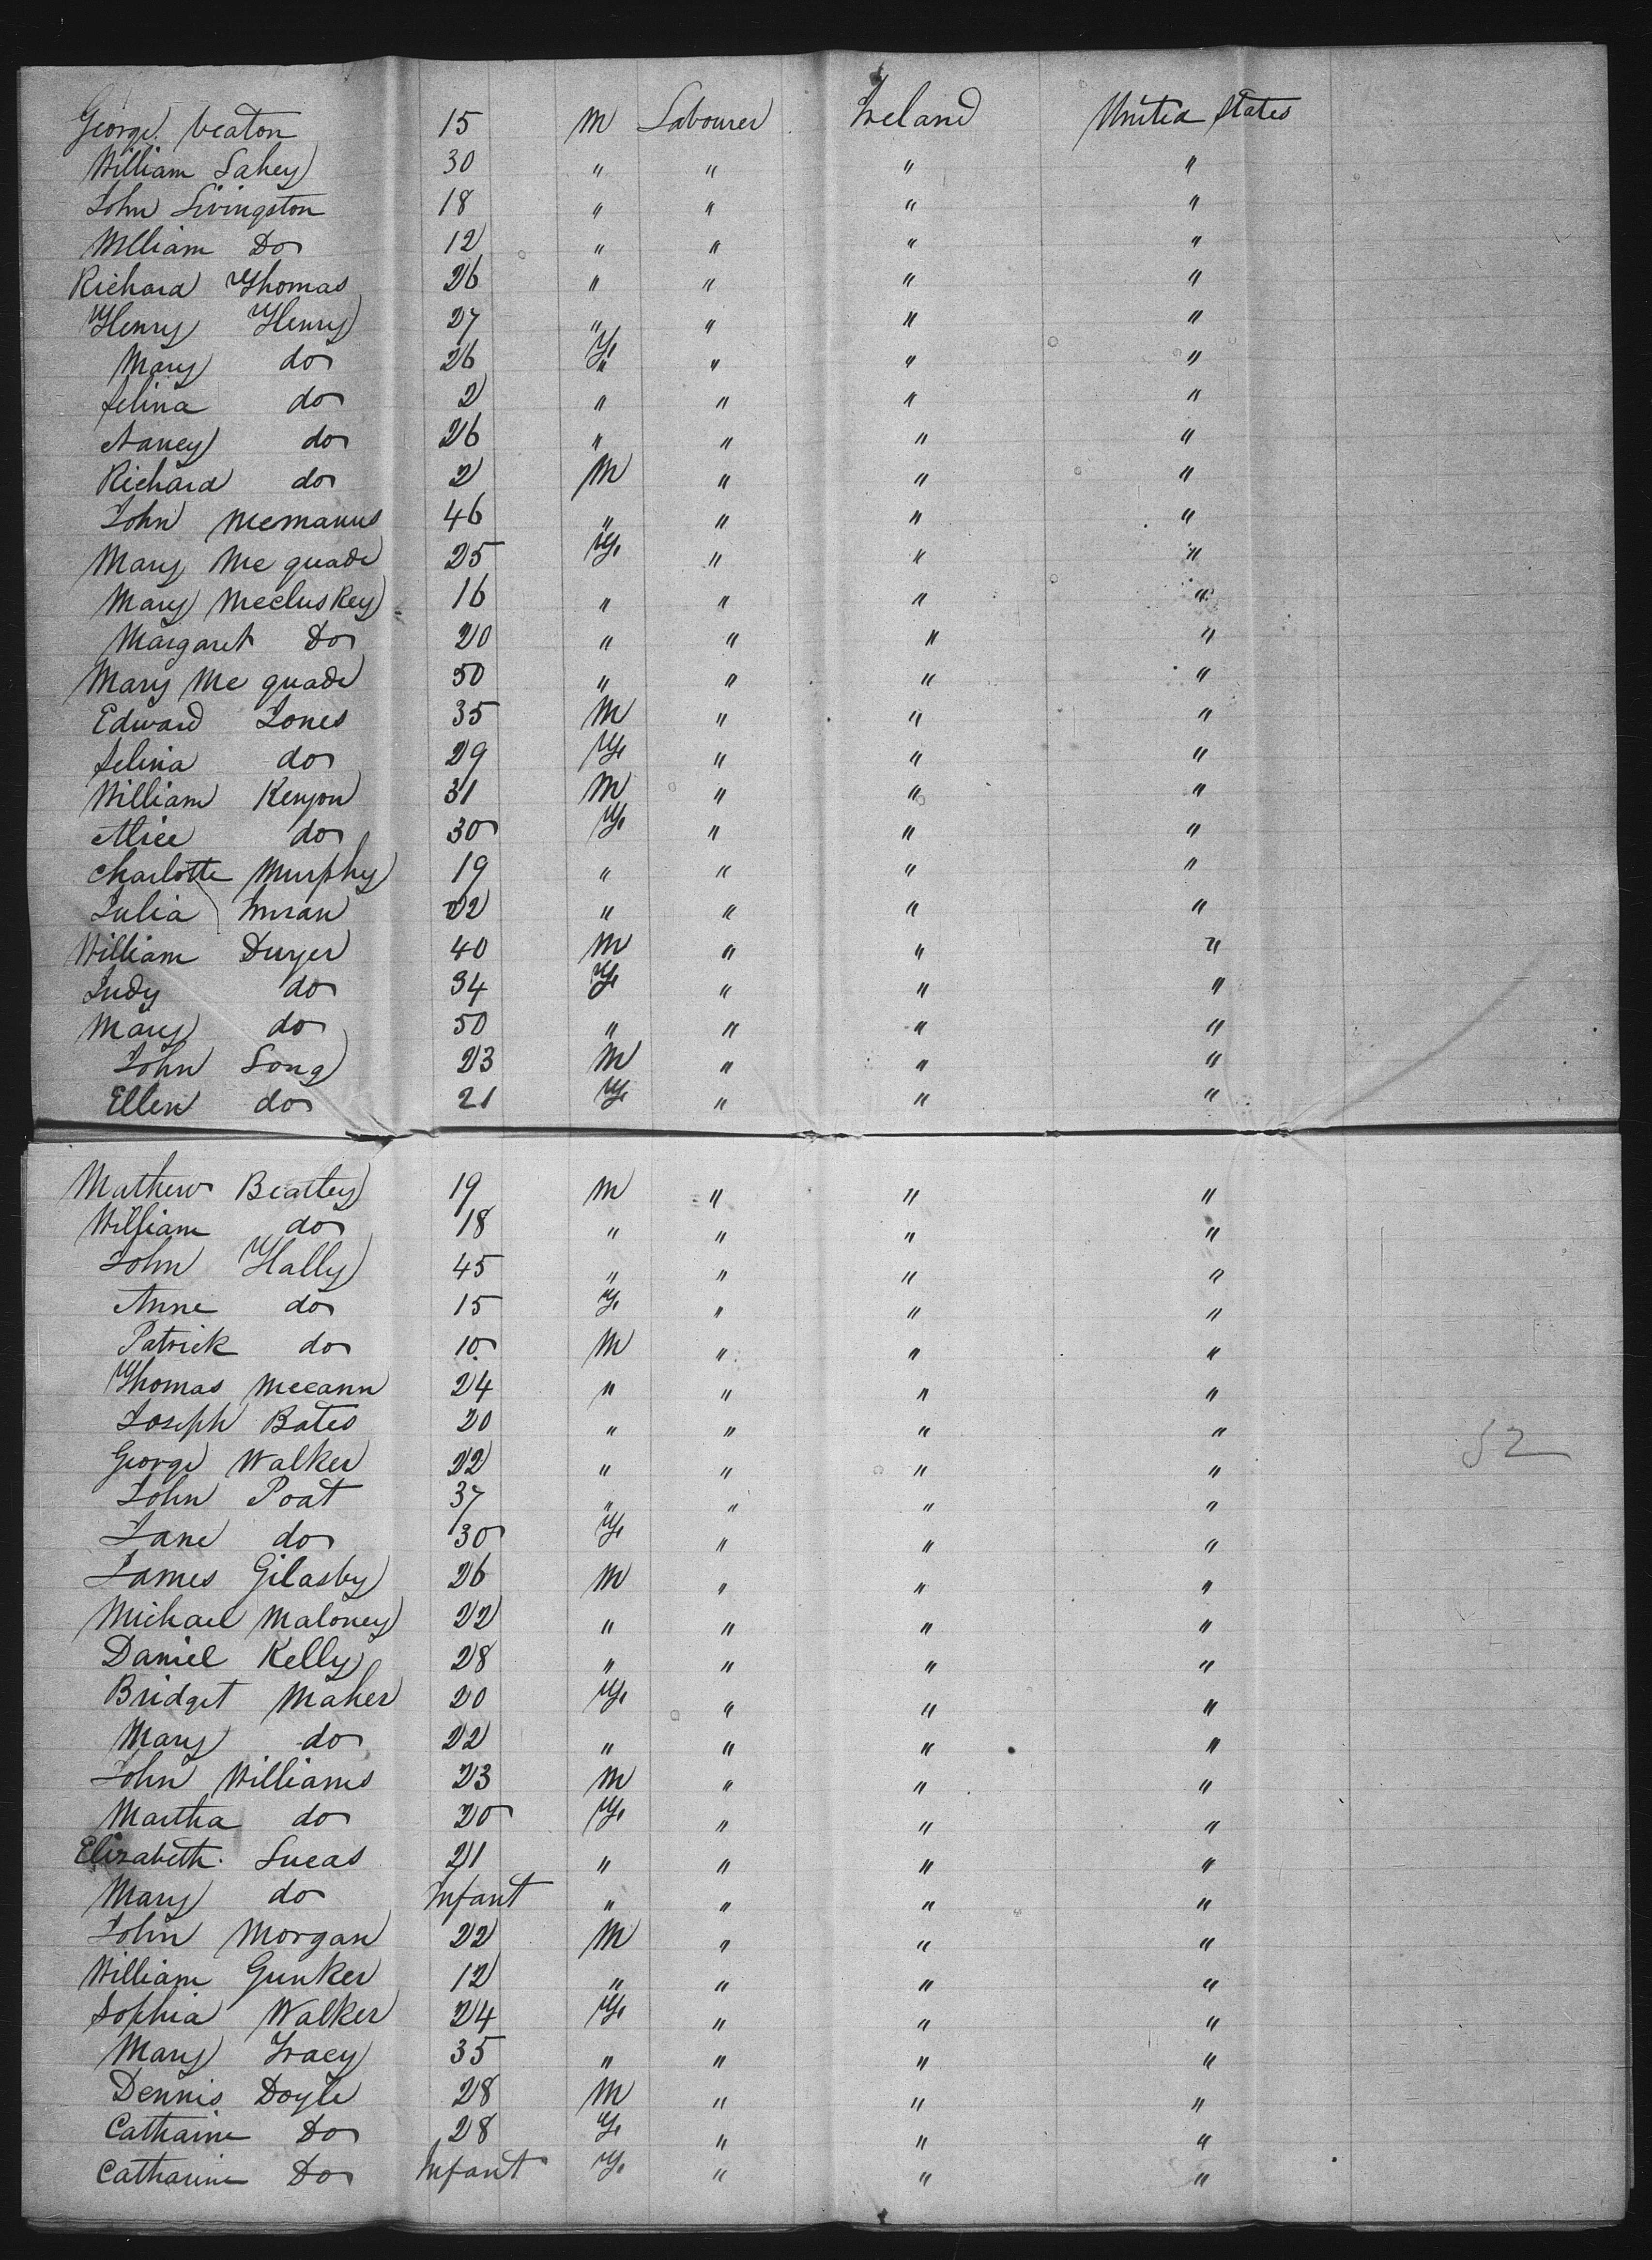 George Veaton 15 M Labourer Ireland United States
William Lahey 30 " " " "
John Livingston 18 " " " "
William Do 12 " " " "
Richard Thomas 26 " " " "
Henry Henry 27 " " " "
Mary do 26 F " " "
Selina do 2 " " " "
Nancy do 26 " " " "
Richard do 2 M " " "
John Mcmanus 46 " " " "
Mary Mc quade 25 F " " "
Mary Mccluskey 16 " " " "
Margaret Do 20 " " " "
Mary Mc quade 50 " " " "
Edward Jones 35 M " " "
Selina do 29 F " " "
William Kenyon 31 M " " "
Alice do 30 F " " "
Charlotte Murphy 19 " " " "
Julia 22 " " " "
William Dwyer 40 M " " "
Judy do 34 F " " "
Mary do 50 " " " "
John Long 23 M " " "
Ellen do 21 F " " "
Mathew Beattey 19 M " " "
William do 18 " " " "
John Hally 45 " " " "
Anne do 15 F " " "
Patrick do 10 M " " "
Thomas Mccann 24 " " " "
Joseph Bates 20 " " " "
George Walker 22 " " " " 52
John Poat 37 " " " "
Jane do 30 F " " "
James Gilasby 26 M " " "
Michael Maloney 22 " " " "
Daniel Kelly 28 " " " "
Bridget Maher 20 F " " "
Mary do 22 " " " "
John Williams 23 M " " "
Martha do 20 F " " "
Elizabeth Lucas 21 " " " "
Mary do Infant " " " "
John Morgan 22 M " " "
William Gunker 12 " " " "
Sophia Walker 24 F " " "
Mary Tracy 35 " " " "
Dennis Doyle 28 M " " "
Catharine Do 28 F " " "
Catharine Do Infant F " " "